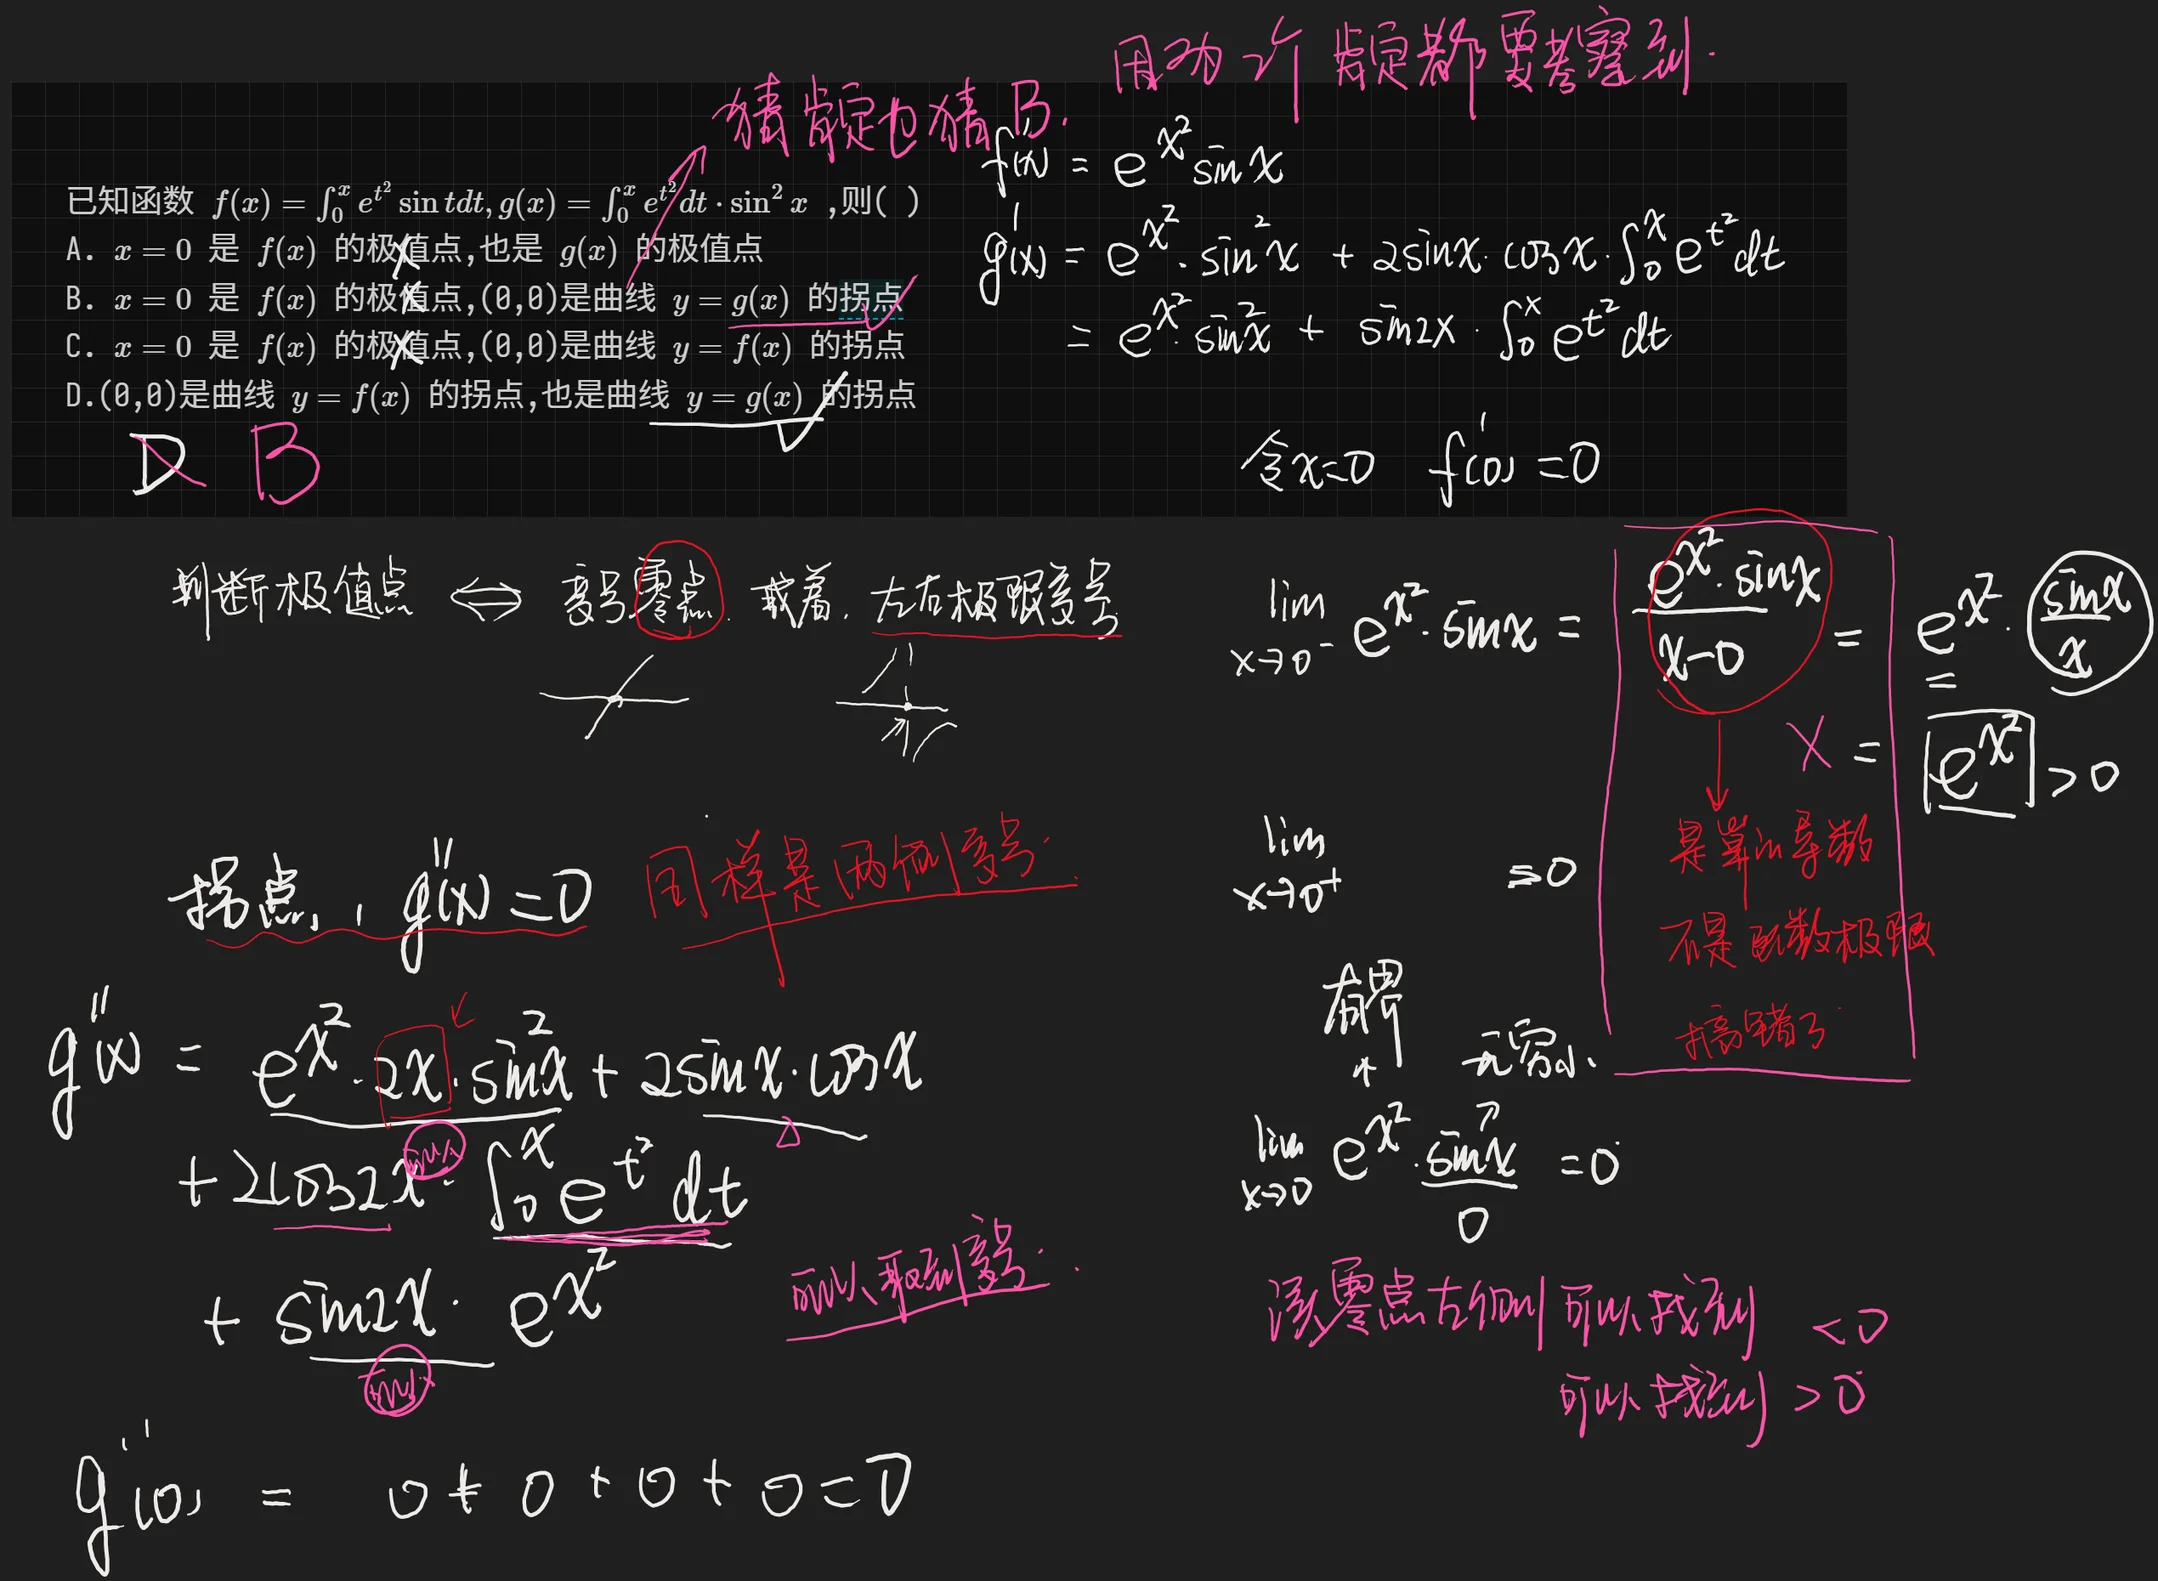 猜肯定也猜B.
因为 肯定都要考察到.
已知函数 $f(x)=\int_0^x e^{t^2}\sin tdt, g(x)=\int_0^x e^{t^2}dt\cdot\sin^2 x$ ,则( )
A. $x=0$ 是 $f(x)$ 的极值点,也是 $g(x)$ 的极值点
B. $x=0$ 是 $f(x)$ 的极值点,(0,0)是曲线 $y=g(x)$ 的拐点
C. $x=0$ 是 $f(x)$ 的极值点,(0,0)是曲线 $y=f(x)$ 的拐点
D.(0,0)是曲线 $y=f(x)$ 的拐点,也是曲线 $y=g(x)$ 的拐点
D B
$f'(x)=e^{x^2}\sin x$
$g'(x)=e^{x^2}\cdot\sin^2 x+2\sin x\cdot\cos x\cdot\int_0^x e^{t^2}dt$
$=e^{x^2}\cdot\sin^2 x+\sin 2x\cdot\int_0^x e^{t^2}dt$
令$x=0$ $f'(0)=0$
判断极值点 $\Longleftrightarrow$ 变号零点. 或着. 左右极限变号
$\lim_{x\to 0^-} e^{x^2}\cdot\sin x=\frac{e^{x^2}\cdot\sin x}{x-0}=e^{x^2}\cdot\frac{\sin x}{x}$
=
X = $e^{x^2}$ >0
是算的导数
不是函数极限
搞错了
$\lim_{x\to 0^+}$ =0
拐点, $g''(x)=0$ 同样是两侧变号.
$g''(x)=e^{x^2}\cdot 2x\cdot\sin^2 x+2\sin x\cdot\cos x$
$+2\cos 2x\cdot\int_0^x e^{t^2}dt$
$+\sin 2x\cdot e^{x^2}$
可以取到变号.
$g''(0)=0+0+0+0=0$
有界 * 无穷小.
$\lim_{x\to 0} e^{x^2}\cdot\sin x=0$
0
该零点左侧可以找到 <0
可以找到 >0